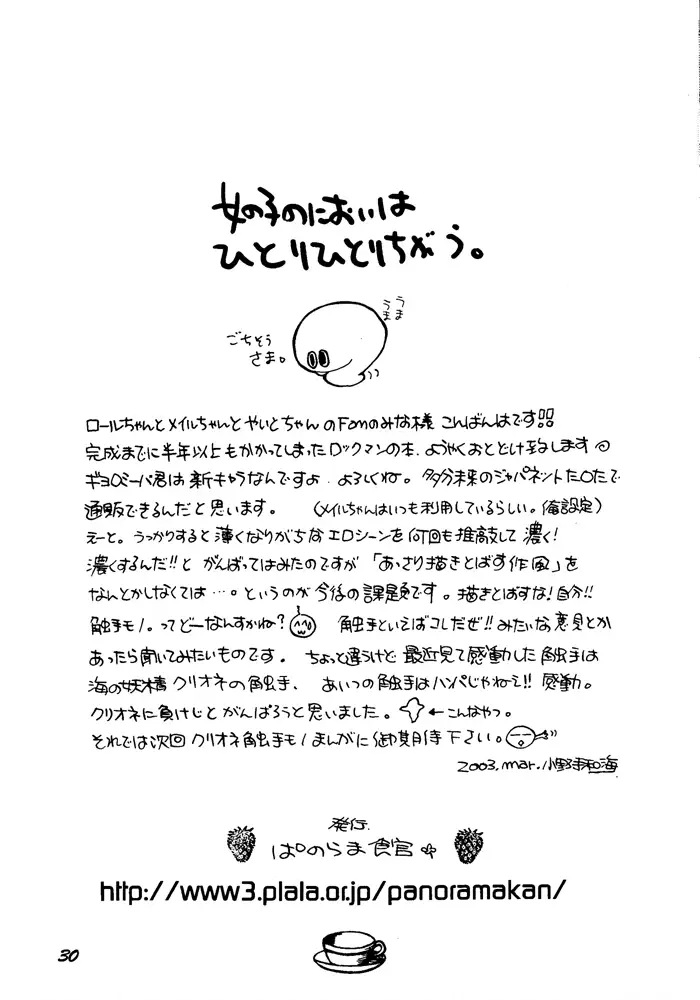 女の子のにおいは
ひとりひとりちがう。
うまうま
ごちそう
さま。
ロールちゃんとメイルちゃんとやいとちゃんのFanのみな様 こんばんはです!!
完成までに半年以上もかかってしまったロックマンの本、ようやくおとどけ致します
ギョロビーバ君は新キャラなんですよ。よろしくね。多分未来のジャパネットたOたで
通販できるんだと思います。 (メイルちゃんはいつも利用しているらしい。俺設定)
えーと。うっかりすると薄くなりがちなエロシーンを何回も推敲して濃く!
濃くするんだ!!と がんばってはみたのですが「あっさり描きとばす作風」を
なんとかしなくては…。というのが今後の課題です。描きとばすな!自分!!
触手モノ。ってどーなんすかね? 触手といえばコレだぜ!!みたいな意見とか
あったら聞いてみたいものです。 ちょっと違うけど 最近見て感動した触手は
海の妖精 クリオネの触手、 あいつの触手はハンパじゃねえ!!感動。
クリオネに負けじとがんばろうと思いました。 ←こんなやつ。
それでは次回 クリオネ触手モノまんがに御期待下さい。
2003.mar.小野寺和海
発行.
ぱのらま食堂
http://www3.plala.or.jp/panoramakan/
30